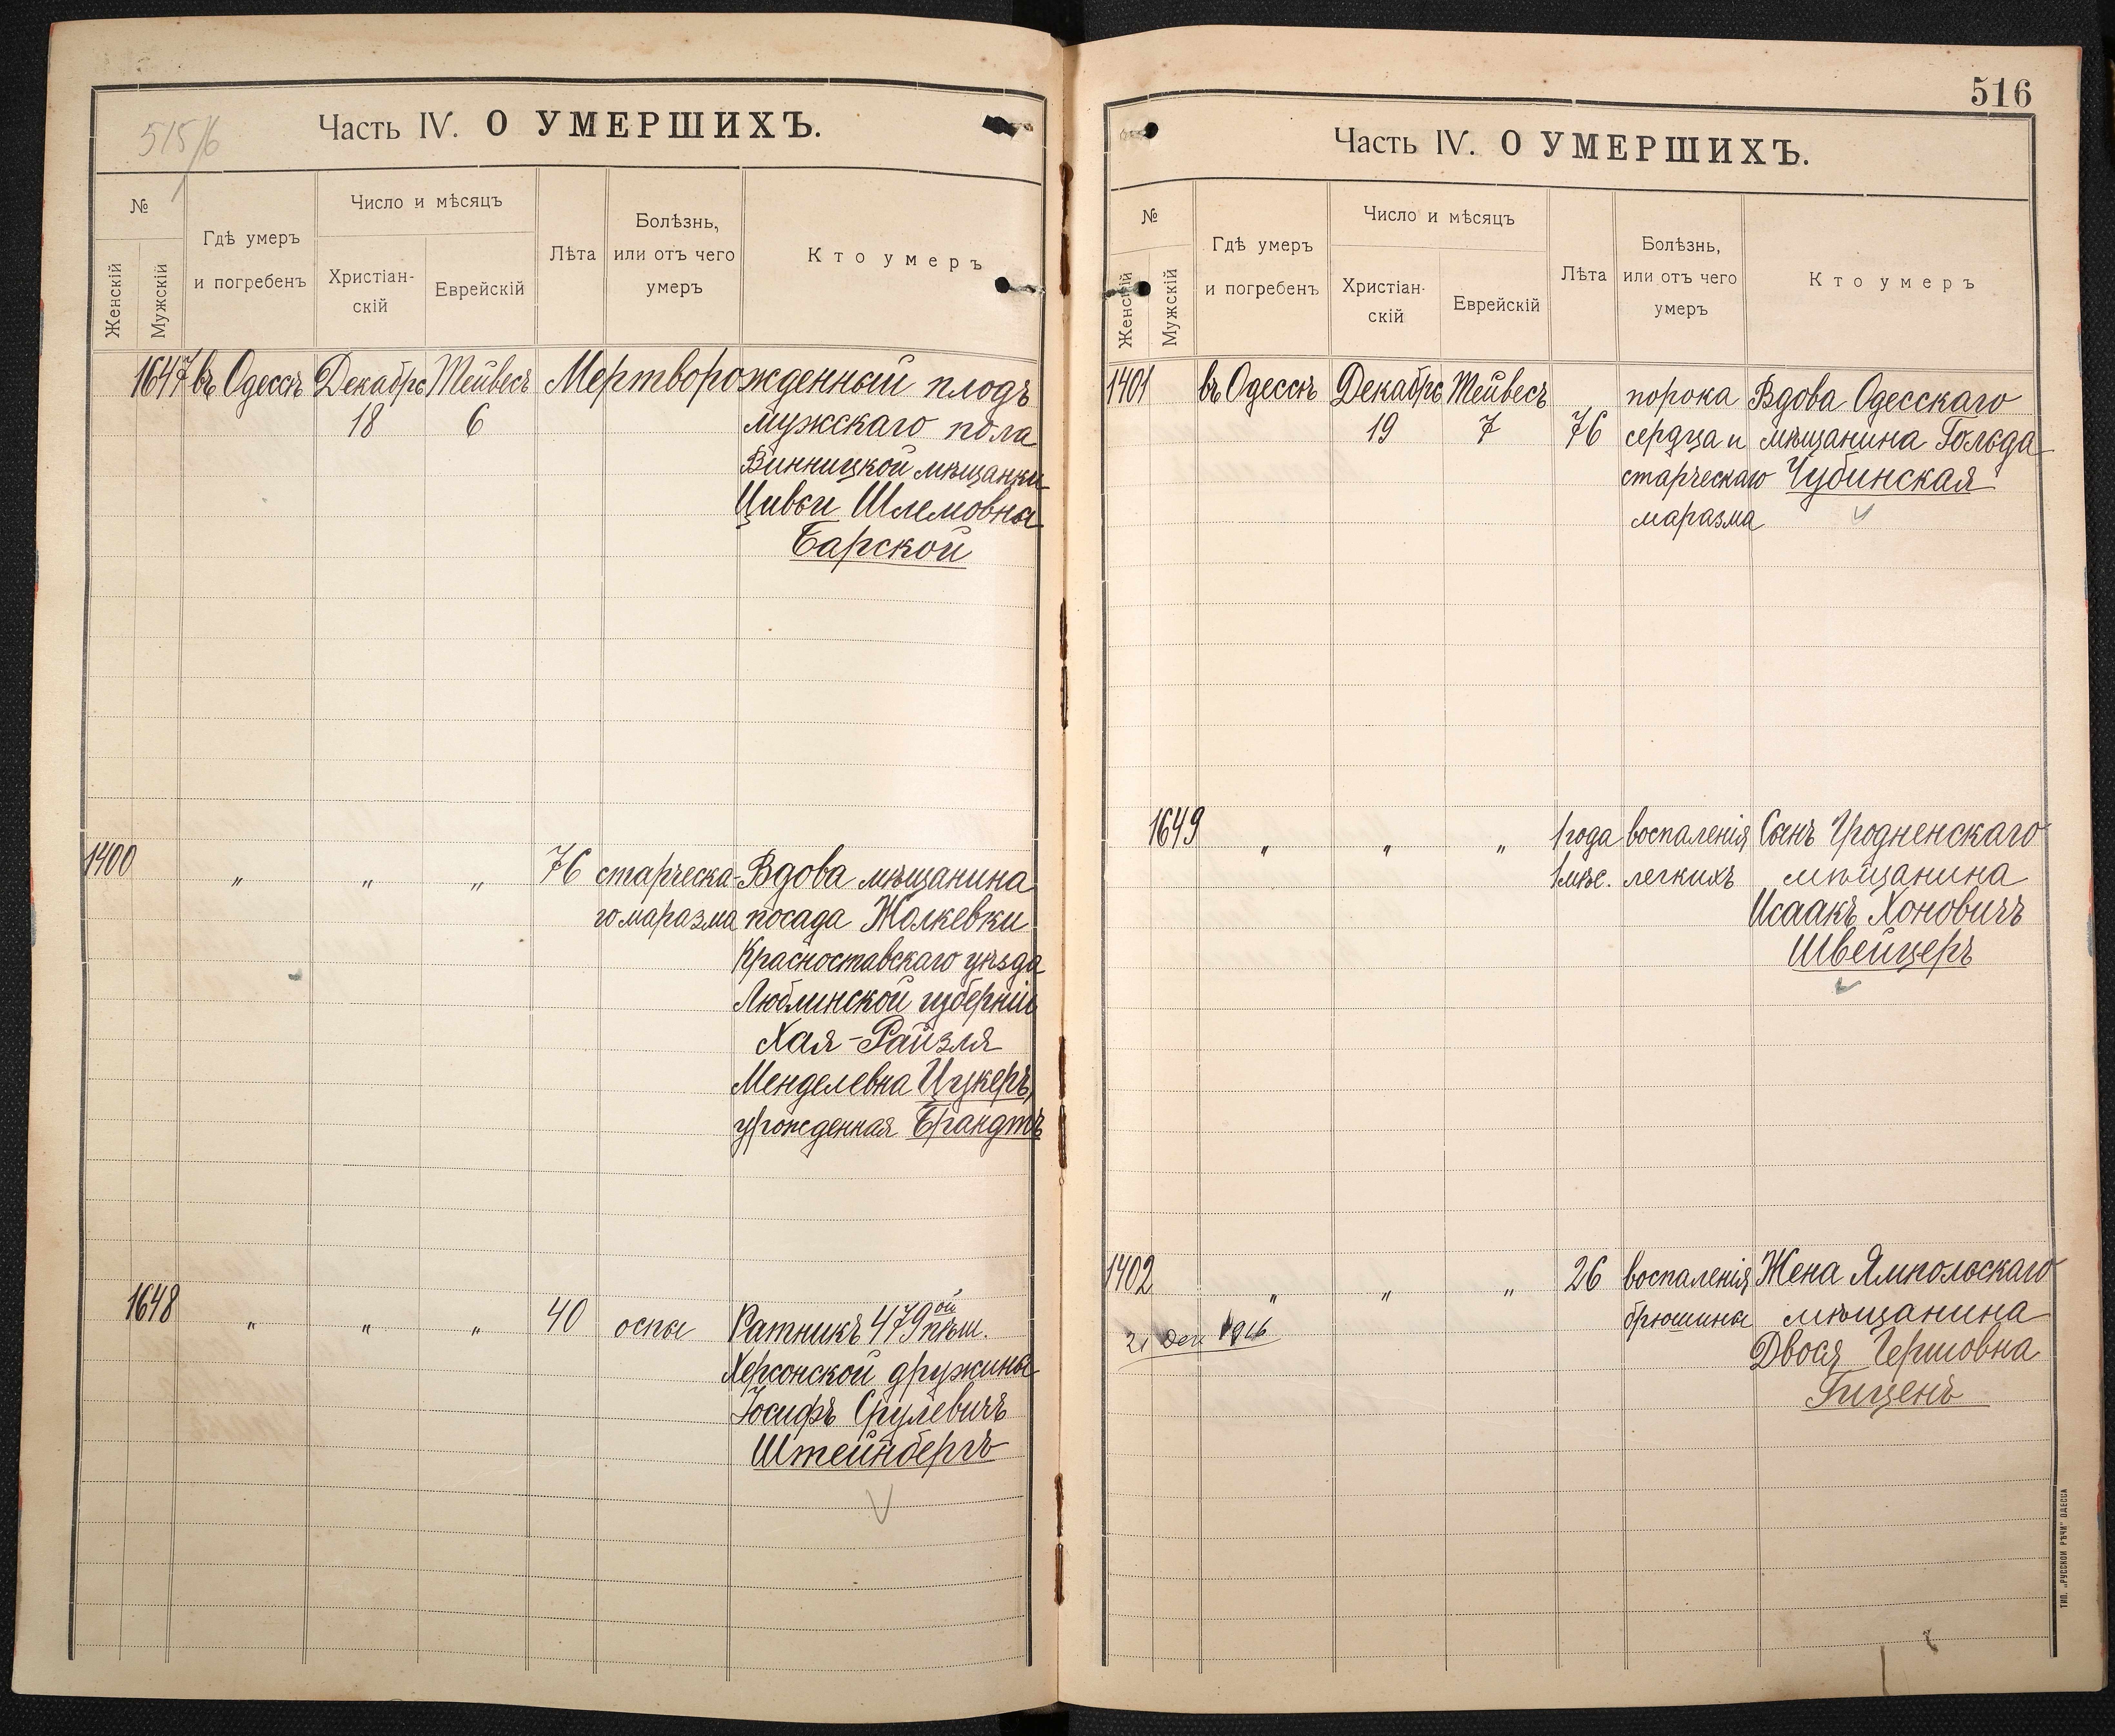 515/6
Часть IV. О УМЕРШИХЪ.
№
Женскій
Мужскій
Гдѣ умеръ
и погребенъ
Число и мѣсяцъ
Христіан-
скій
Еврейскій
Лѣта
Болѣзнь,
или отъ чего
умеръ
Кто умеръ
1647 въ Одессѣ Декабрь Тейвесъ Мертворожденный плодъ
18 6 мужскаго пола
Винницкой мѣщанки
Цивьи Шлемовны
Барской
1400 " " " 76 старческа- Вдова мѣщанина
го маразма посада Жолкевки
Красноставскаго уѣзда
Люблинской губерніи
Хая-Райзля
Менделевна Цукеръ,
урожденная Брандтъ
1648 " " " 40 оспы Ратникъ 479ой пѣш.
Херсонской дружины
Іосифъ Срулевичъ
Штейнбергъ
516
Часть IV. О УМЕРШИХЪ.
№
Женскій
Мужскій
Гдѣ умеръ
и погребенъ
Число и мѣсяцъ
Христіан-
скій
Еврейскій
Лѣта
Болѣзнь,
или отъ чего
умеръ
Кто умеръ
1401 въ Одессѣ Декабрь Тейвесъ порока Вдова Одесскаго
19 7 76 сердца и мѣщанина Гольда
старческаго Чубинская
маразма
1649 " " " 1 года воспаленія Сынъ Гродненскаго
1 мѣс. легкихъ мѣщанина
Исаакъ Хоновичъ
Швейцеръ
1402 " " " 26 воспаленія Жена Ямпольскаго
21 дек 1916 брюшины мѣщанина
Двося Гершовна
Гиценъ
ТИП. „РУССКОЙ РѢЧИ" ОДЕССА